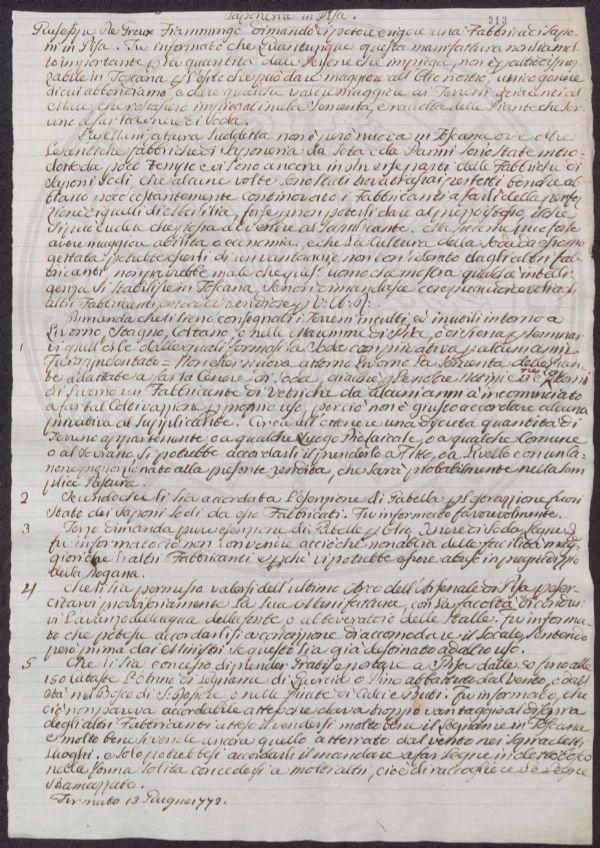 Saponeria in Pisa.
313
Giuseppe De Groux Fiammingo dimandò di potere erigere una Fabbrica di Sapo-
ni in Pisa. Fu informato che quantunque questa manifattura non sia mol-
to importante per la quantità delle Persone che impiega, non è però disprez-
zabile in Toscana per l'esito che può dare maggiore all'Olio nostro, unico genere
di cui abbondiamo, e dare qualche valore maggiore ai Terreni vicini al
Mare che restassero impiegati nella Sementa, e raccolta delle Piante che ser-
vano a far la Cenere di Soda.
Questa manifattura suddetta non è però nuova in Toscana ove oltre
le antiche fabbriche di Saponeria da Seta e da Panni sono state intro-
dotte da poco tempo e vi sono ancora in diverse parti delle Fabbriche di
Saponi Sodi, che alcune volte sono stati trovati assai perfetti bench'e ab-
biano poco costantemente continovato i Fabbricanti a farli della perfe-
zione di quelli di Marsilia, forse per non poterli dare al prezzo stesso, e lo
si può credere che possa avvenire al Supplicante. Ma siccome può forse
avere maggiore abilità o economia, e che la Cultura della Soda da esso pro-
gettata potrebbe essergli di un vantaggio non considerato dagli altri fab-
bricanti non sarebbe male che quest'uomo che mostra qualche intelli-
genza si stabilisse in Toscana, se non dimandasse
altri Fabbricanti
Dimanda che li siano consegnati i Terreni inculti, ed inutili intorno a
Livorno, Stagno, Coltano, e nelle Maremme di Pisa, e di Siena per seminar-
1 vi quell'erbe dalle quali formasi la Soda con privativa per alcuni anni.
Fu rappresentato = Non esser nuova attorno Livorno la Sementa delle Pian-
te adattate a far la Cenere di Soda, giacchè per nostre notizie vicino
di Livorno un Fabbricante di Vetri che da alcuni anni à incominciato
a far tal Coltivazione per proprio uso, perciò non è giusto accordare alcuna
privativa al Supplicante. Circa all'ottenere una discreta quantità di
Terreno appartenente, o a qualche Luogo Pio Laicale, o a qualche Comune
o al Sovrano, si potrebbe accordarli il prenderlo a Fitto, o a Livello con un Ca-
none proporzionato alla presente rendita, che sarà probabilmente nella sem-
plice Pastura.
2 Secondo che li sia accordata l'esenzione di Gabella per l'estrazione fuori
Stato dei Saponi Sodi da esso Fabbricati. Fu informato favorevolmente.
3 Terzo dimanda pure esenzione di Gabelle per Olio, Cenere di Soda, Legne &
fu informato ciò non convenire acciocchè non abbia delle facilità mag-
giori che gli altri Fabbricanti e perchè vi potrebbe essere abuso in pregiudizio
della Dogana.
4 Che li sia permesso valersi dell'ultimo Arco dell'Arsenale di Pisa per eser-
citarvi provvisoriamente la sua Manifattura, con la facoltà di condur-
vi l'avanzo dell'acqua della fonte o abbeveratoio delle Stalle. fu informa-
to che potesse accordarsi a condizione di accomodare il locale, sentendo
però prima dai Ministri se questo sia già destinato ad altro uso.
5 Che li sia concesso di prender gratis e portare a Pisa dalle 50 fino alle
150 Cataste l'Anno di Legname di Quercia o Pino abbattuto dal Vento, e
nel Bosco di S. Rossore, e nelle Pinete di Calci e Buti. Fu informato, che
ciò non pareva accordabile attesochè dava troppo vantaggio al di sopra
degli altri Fabbricanti atteso il vendersi molto bene il Legname in Toscana
e molto bene si vende ancora quello atterrato dal vento nei sopradetti
Luoghi. e solo potrebbesi accordarli il mandare a far Legne in detto Bosco
nella forma solita concedersi a molti altri, cioè di raccogliere le Legne
stramazzate.
Firmato 13 Giugno 1772.